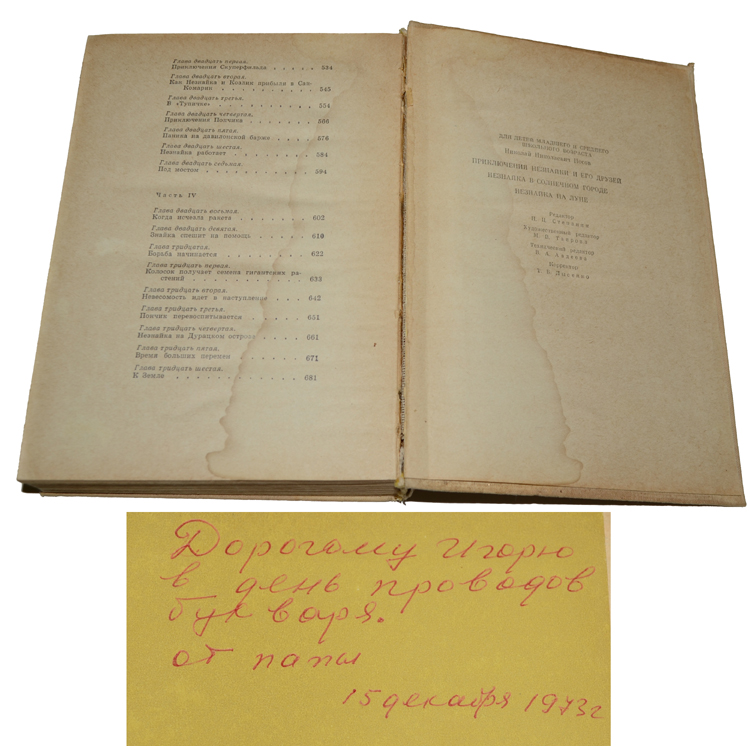 Глава двадцать первая.
Приключения Скуперфильда . . . . . 534
Глава двадцать вторая.
Как Незнайка и Козлик прибыли в Сан-
Комарик . . . . . . . . . . . 545
Глава двадцать третья.
В «Тупичке» . . . . . . . . . . 554
Глава двадцать четвертая.
Приключения Пончика . . . . . . 566
Глава двадцать пятая.
Паника на давилонской бирже . . . . 576
Глава двадцать шестая.
Незнайка работает . . . . . . . 584
Глава двадцать седьмая.
Под мостом . . . . . . . . . . 594
Часть IV
Глава двадцать восьмая.
Когда исчезла ракета . . . . . . . 602
Глава двадцать девятая.
Знайка спешит на помощь . . . . . 610
Глава тридцатая.
Борьба начинается . . . . . . . 622
Глава тридцать первая.
Колосок получает семена гигантских ра-
стений . . . . . . . . . . . 633
Глава тридцать вторая.
Невесомость идет в наступление . . . 642
Глава тридцать третья.
Пончик перевоспитывается . . . . . 651
Глава тридцать четвертая.
Незнайка на Дурацком острове . . . . 661
Глава тридцать пятая.
Время больших перемен . . . . . . 671
Глава тридцать шестая.
К Земле . . . . . . . . . . . 681
ДЛЯ ДЕТЕЙ МЛАДШЕГО И СРЕДНЕГО
ШКОЛЬНОГО ВОЗРАСТА
Николай Николаевич Носов
ПРИКЛЮЧЕНИЯ НЕЗНАЙКИ И ЕГО ДРУЗЕЙ
НЕЗНАЙКА В СОЛНЕЧНОМ ГОРОДЕ
НЕЗНАЙКА НА ЛУНЕ
Редактор
Художественный редактор
Технический редактор
Корректор
Дорогому Игорю
в день проводов
букваря.
от папы
15 декабря 1973 г